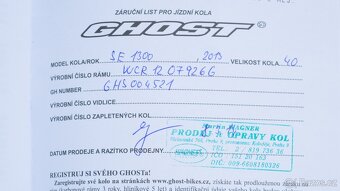 ZÁRUČNÍ LIST PRO JÍZDNÍ KOLA
GHOST
MODEL KOLA/ROK SE 1300 2013 VELIKOST KOLA 40
VÝROBNÍ ČÍSLO RÁMU WCR12 07926G
GH NUMBER GHS004521
VÝROBNÍ ČÍSLO VIDLICE
VÝROBNÍ ČÍSLO ZAPLETENÝCH KOL
WAGNER
PRODEJ A OPRAVY KOL
DATUM PRODEJE A RAZÍTKO PRODEJNY:
REGISTRUJ SI SVÉHO GHOSTa!
Zaregistrujte své kolo na stránkách www.ghost-bikes.cz, získáte tak prodlouženou